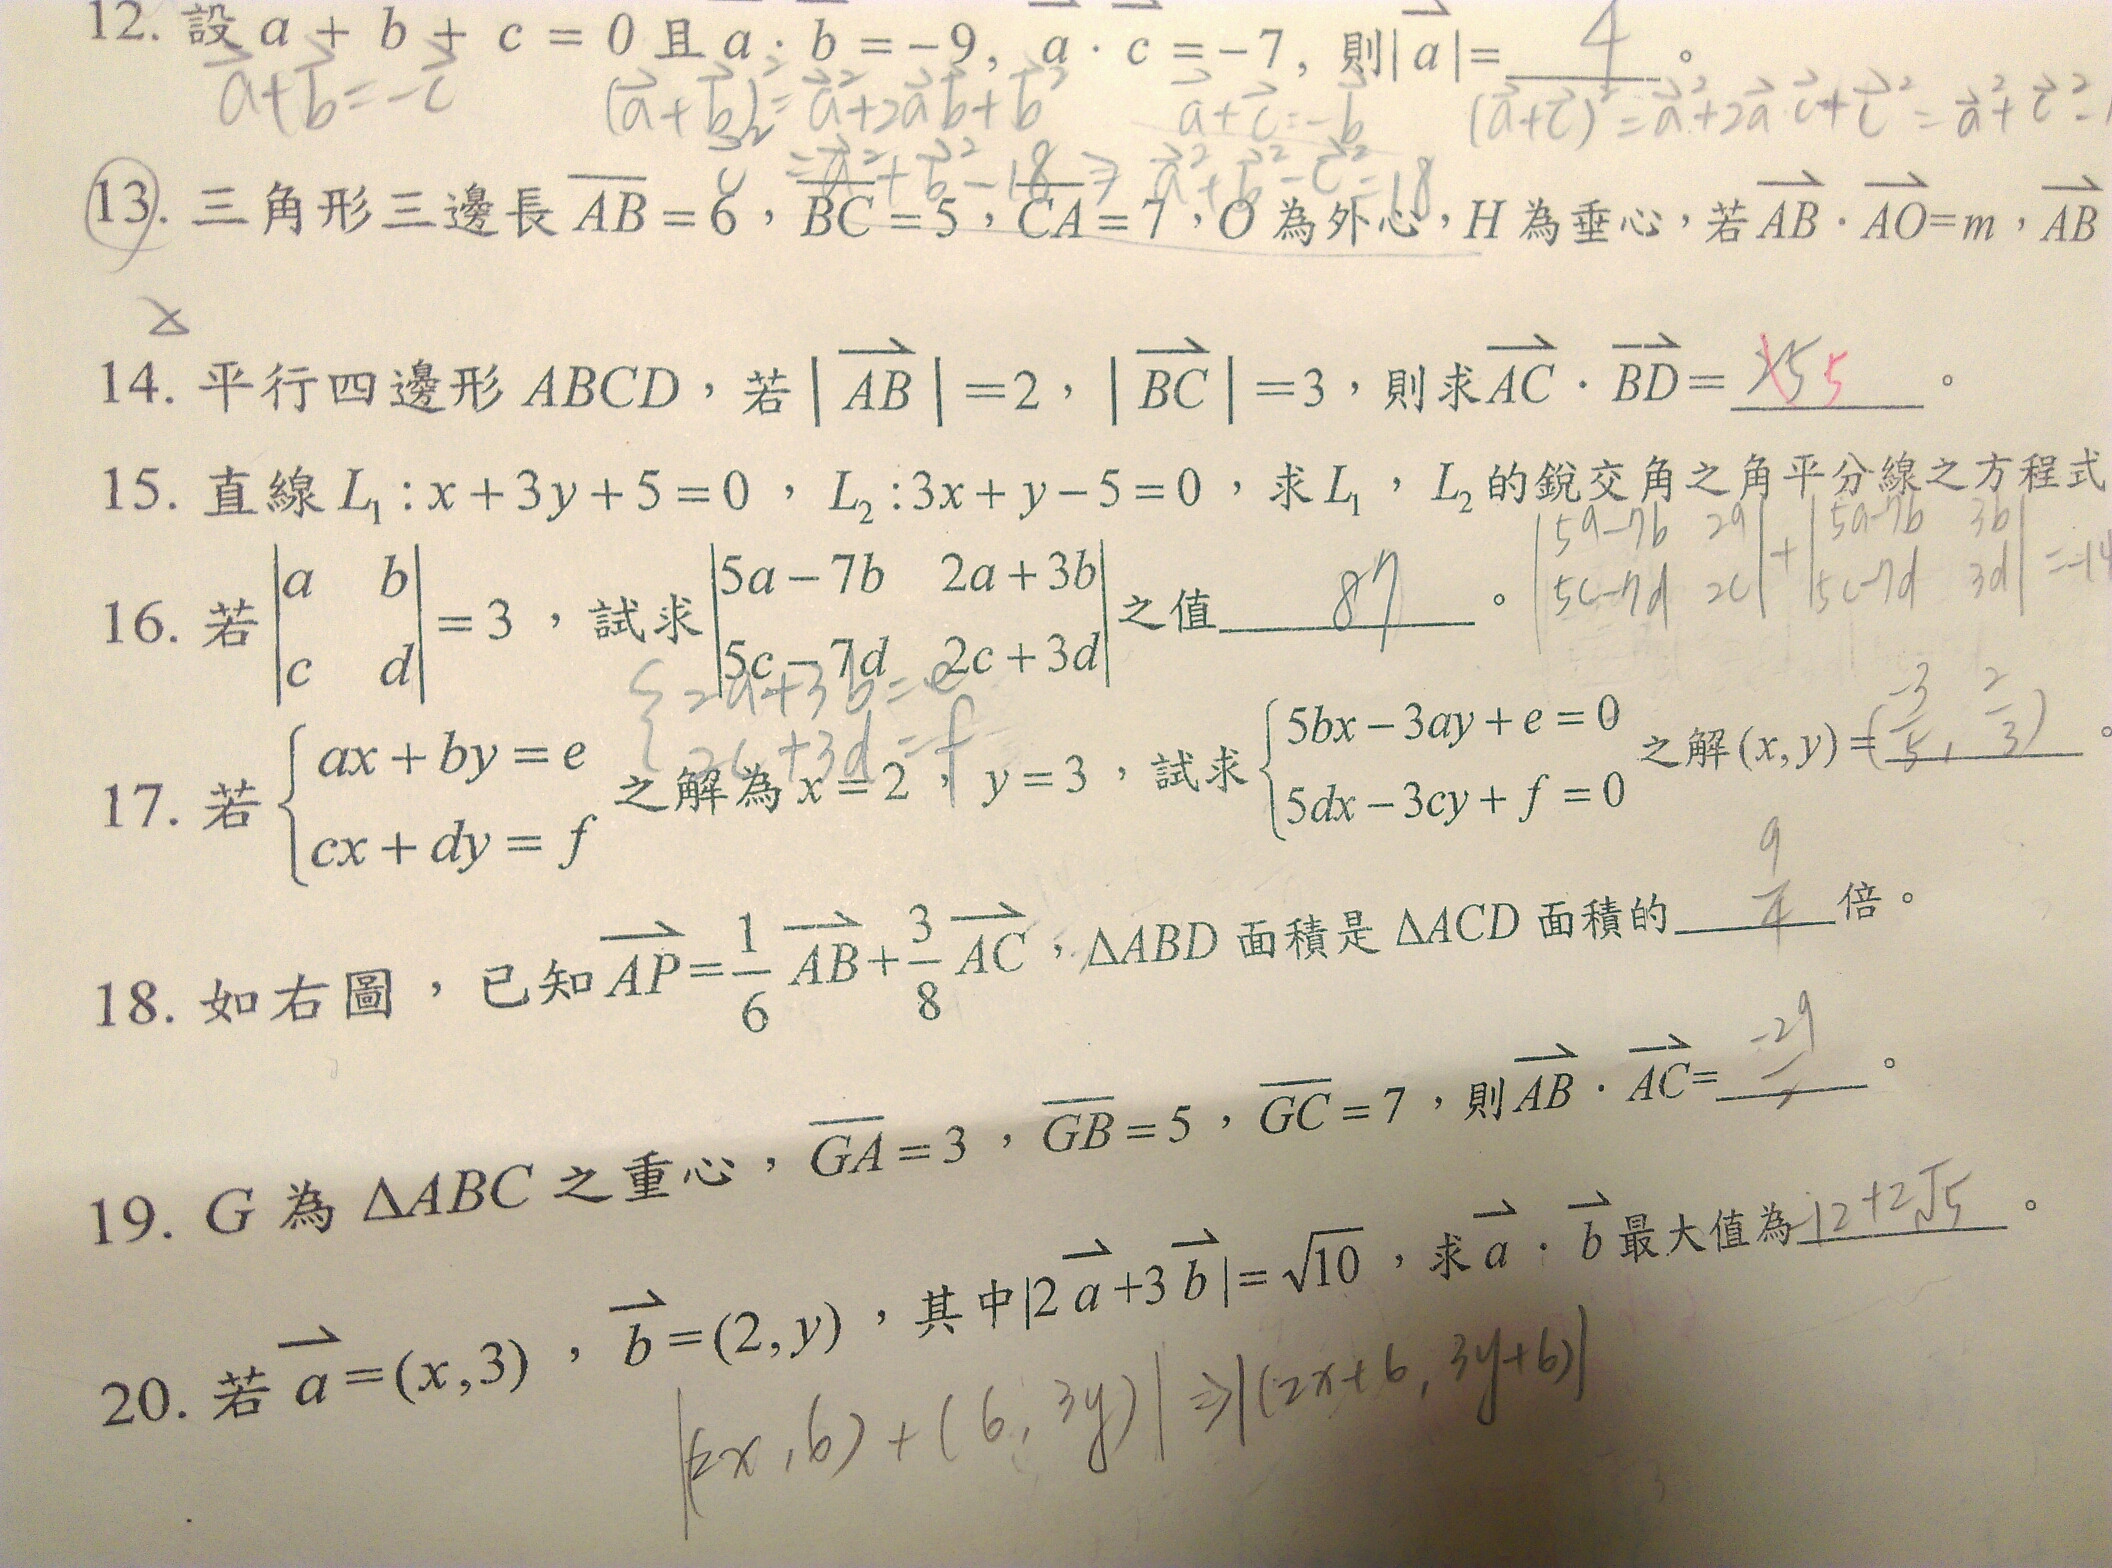 12. 設 a + b + c = 0 且 a · b = -9, a · c = -7, 則|a|= 4 。
a+b=-c (a+b)²=a²+2ab+b² a+c=-b (a+c)²=a²+2ac+c²=a²+c²-1
=a²+b²-18 ⇒ a²+b²-c²=18
13. 三角形三邊長 AB = 6，BC = 5，CA = 7，O 為外心，H 為垂心，若 AB · AO=m，AB
14. 平行四邊形 ABCD，若 | AB | = 2，| BC | = 3，則求 AC · BD = 5 。
15. 直線 L₁ : x + 3y + 5 = 0 ， L₂ : 3x + y - 5 = 0，求 L₁ ， L₂ 的銳交角之角平分線之方程式
16. 若 |a b| = 3 ，試求 |5a - 7b 2a + 3b| 之值 87 。 |5a-7b 2a| + |5a-7b 3b| = -14
|c d| |5c - 7d 2c + 3d| |5c-7d 2c| |5c-7d 3d|
{2a+3b=e
{2c+3d=f
17. 若 {ax + by = e 之解為 x = 2 ， y = 3 ，試求 {5bx - 3ay + e = 0 之解 (x, y) = (-3/5, 2/3) 。
{cx + dy = f {5dx - 3cy + f = 0
18. 如右圖，已知 AP = 1/6 AB + 3/8 AC ，ΔABD 面積是 ΔACD 面積的 9/4 倍。
19. G 為 ΔABC 之重心，GA = 3 ，GB = 5 ，GC = 7 ，則 AB · AC = -29 。
20. 若 a = (x,3) ， b = (2, y) ，其中|2a+3b|= √10 ，求 a · b 最大值為 -12+2√5 。
|(2x, 6) + (6, 3y)| ⇒ |(2x+6, 3y+6)|